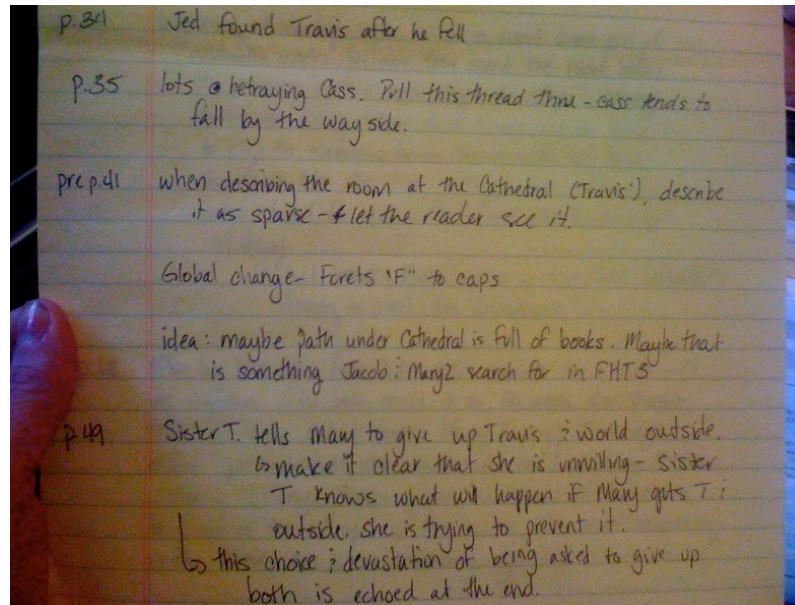 p.34 Jed found Travis after he fell
p.35 lots @ betraying Cass. Pull this thread thru - cass tends to
fall by the way side.
pre p.41 when describing the room at the Cathedral (Travis'), describe
it as sparse - & let the reader see it.
Global change - Forets "F" to caps
idea: maybe path under Cathedral is full of books. Maybe that
is something Jacob & Mary2 search for in FHT3
p.49 Sister T. tells Mary to give up Travis & world outside.
↳ make it clear that she is unwilling - Sister
T knows what will happen if Mary gets T &
outside. she is trying to prevent it.
↳ this choice & devastation of being asked to give up
both is echoed at the end.